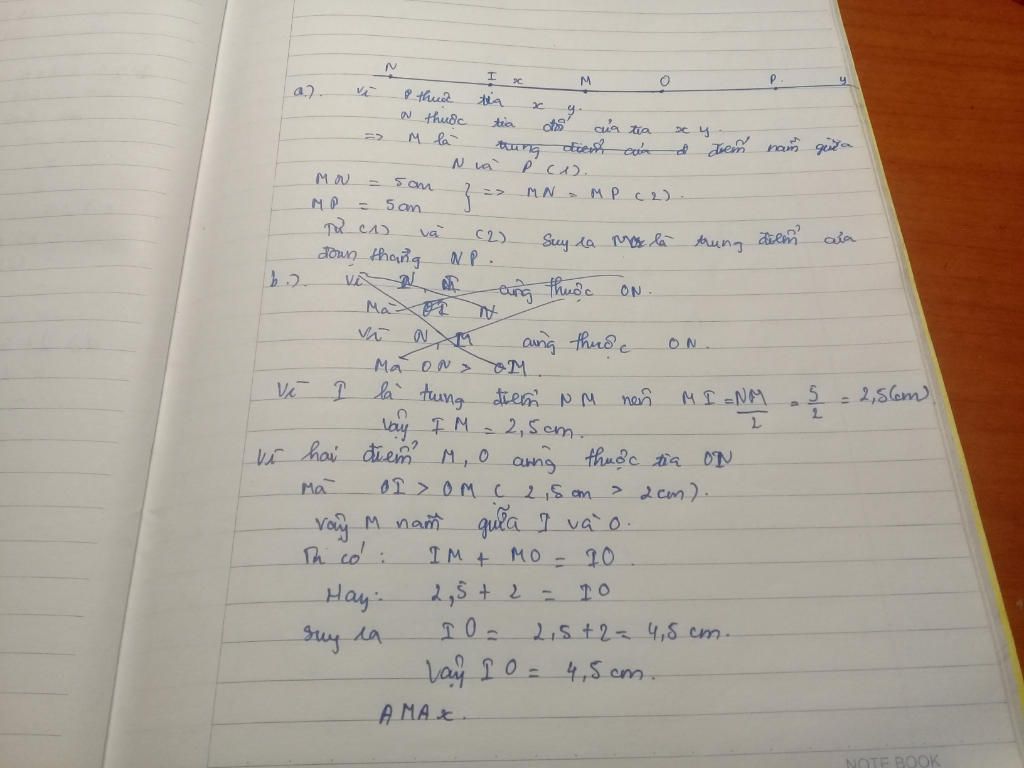 N I x M O P y
a.) Vì P thuộc tia x y.
N thuộc tia đối của tia x y.
=> M là trung điểm của điểm nằm giữa
N và P (1).
MN = 5cm
MP = 5cm } => MN = MP (2).
Từ (1) và (2) Suy ra M là trung điểm của
đoạn thẳng NP.
b.) Vì N, cùng thuộc ON.
Mà OI N
Vì N, M cùng thuộc ON.
Mà ON > OM.
Vì I là trung điểm NM nên MI = NM/2 = 5/2 = 2,5(cm)
Vậy IM = 2,5cm.
Vì hai điểm M, O cùng thuộc tia ON
Mà OI > OM (2,5cm > 2cm).
Vậy M nằm giữa I và O.
Ta có: IM + MO = IO.
Hay: 2,5 + 2 = IO
Suy ra IO = 2,5+2 = 4,5 cm.
Vậy IO = 4,5cm.
AMAx.
NOTE BOOK